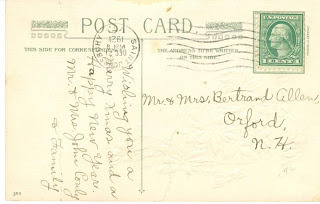 POST CARD.
THIS SIDE FOR CORRESPONDENCE
THE ADDRESS TO BE WRITTEN
ON THIS SIDE
1921
U.S. POSTAGE
1 CENT 1
Wishing you a
Merry Xmas and a
Happy New Year.
Mr. & Mrs. John
& Family
Mr. & Mrs. Bertrand Allen,
Orford,
N. H.